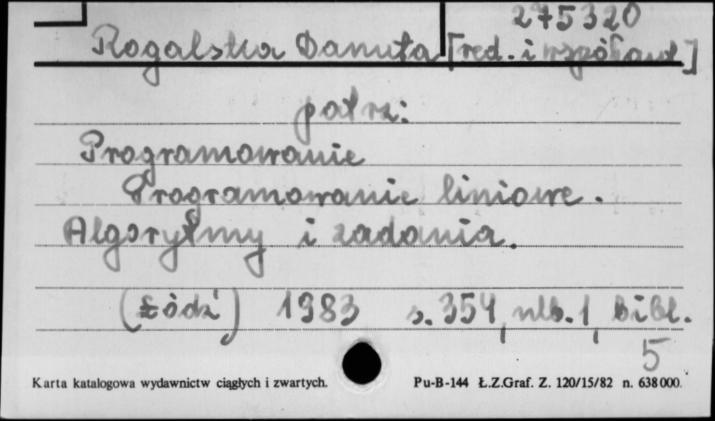 275320
Rogalska Danuta [red. i współaut]
patrz:
Programowanie
Programowanie liniowe.
Algorytmy i zadania.
(Łódź) 1983 s. 354, nlb. 1, bibl.
5
Karta katalogowa wydawnictw ciągłych i zwartych. Pu-B-144 Ł.Z.Graf. Z. 120/15/82 n. 638000.